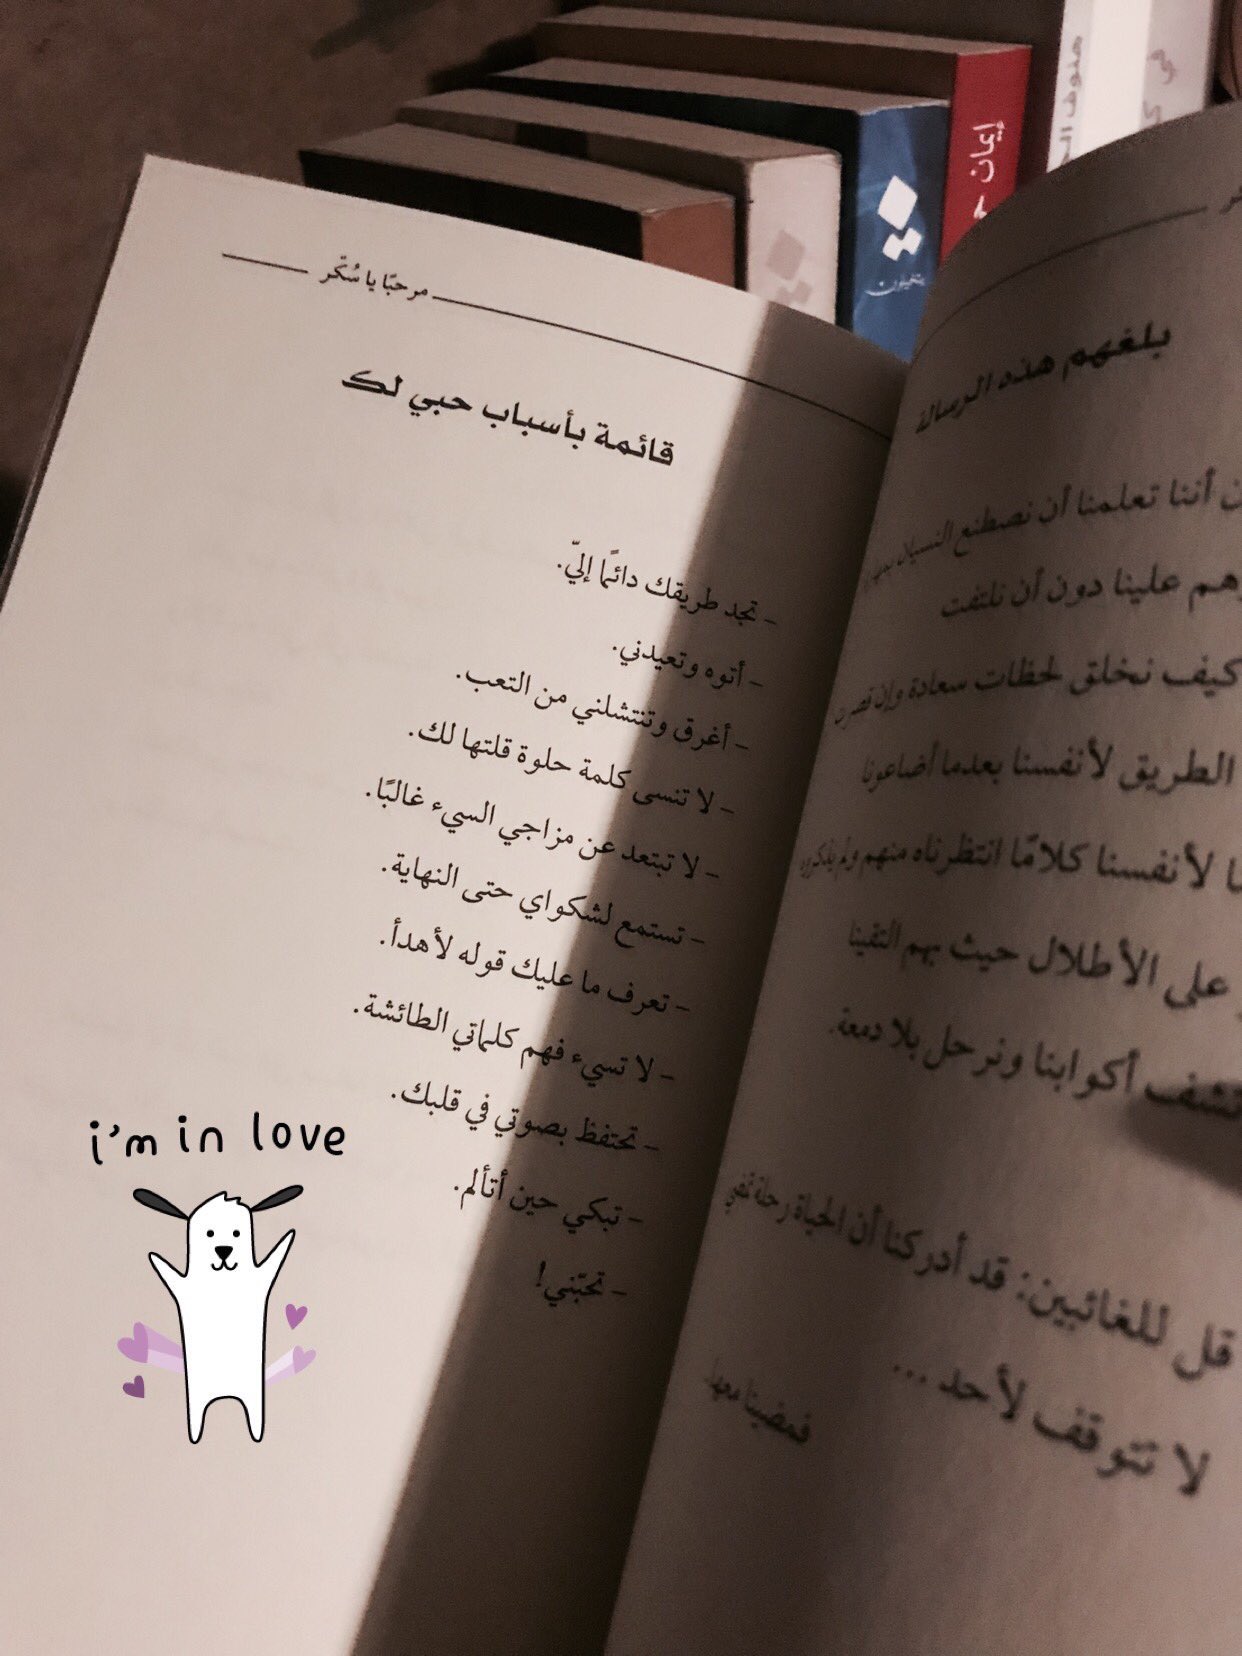 إيمان
يتخيلون
مرحبًا يا سُكّر
قائمة بأسباب حبي لك
- تجد طريقك دائمًا إليّ.
- أتوه وتعيدني.
- أغرق وتنتشلني من التعب.
- لا تنسى كلمة حلوة قلتها لك.
- لا تبتعد عن مزاجي السيء غالبًا.
- تستمع لشكواي حتى النهاية.
- تعرف ما عليك قوله لأهدأ.
- لا تسيء فهم كلماتي الطائشة.
- تحتفظ بصوتي في قلبك.
- تبكي حين أتألم.
- تحبّني!
i'm in love
بلغهم هذه الرسالة
أننا تعلمنا أن نصطنع النسيان
علينا دون أن نلتفت
كيف نخلق لحظات سعادة وإن قصرت
الطريق لأنفسنا بعدما أضاعونا
لأنفسنا كلامًا انتظرناه منهم ولم
على الأطلال حيث بهم التقينا
أكوابنا ونرحل بلا دمعة.
قل للغائبين: قد أدركنا أن الحياة رحلة تمضي
لا تتوقف لأحد ...
فمضينا معها.